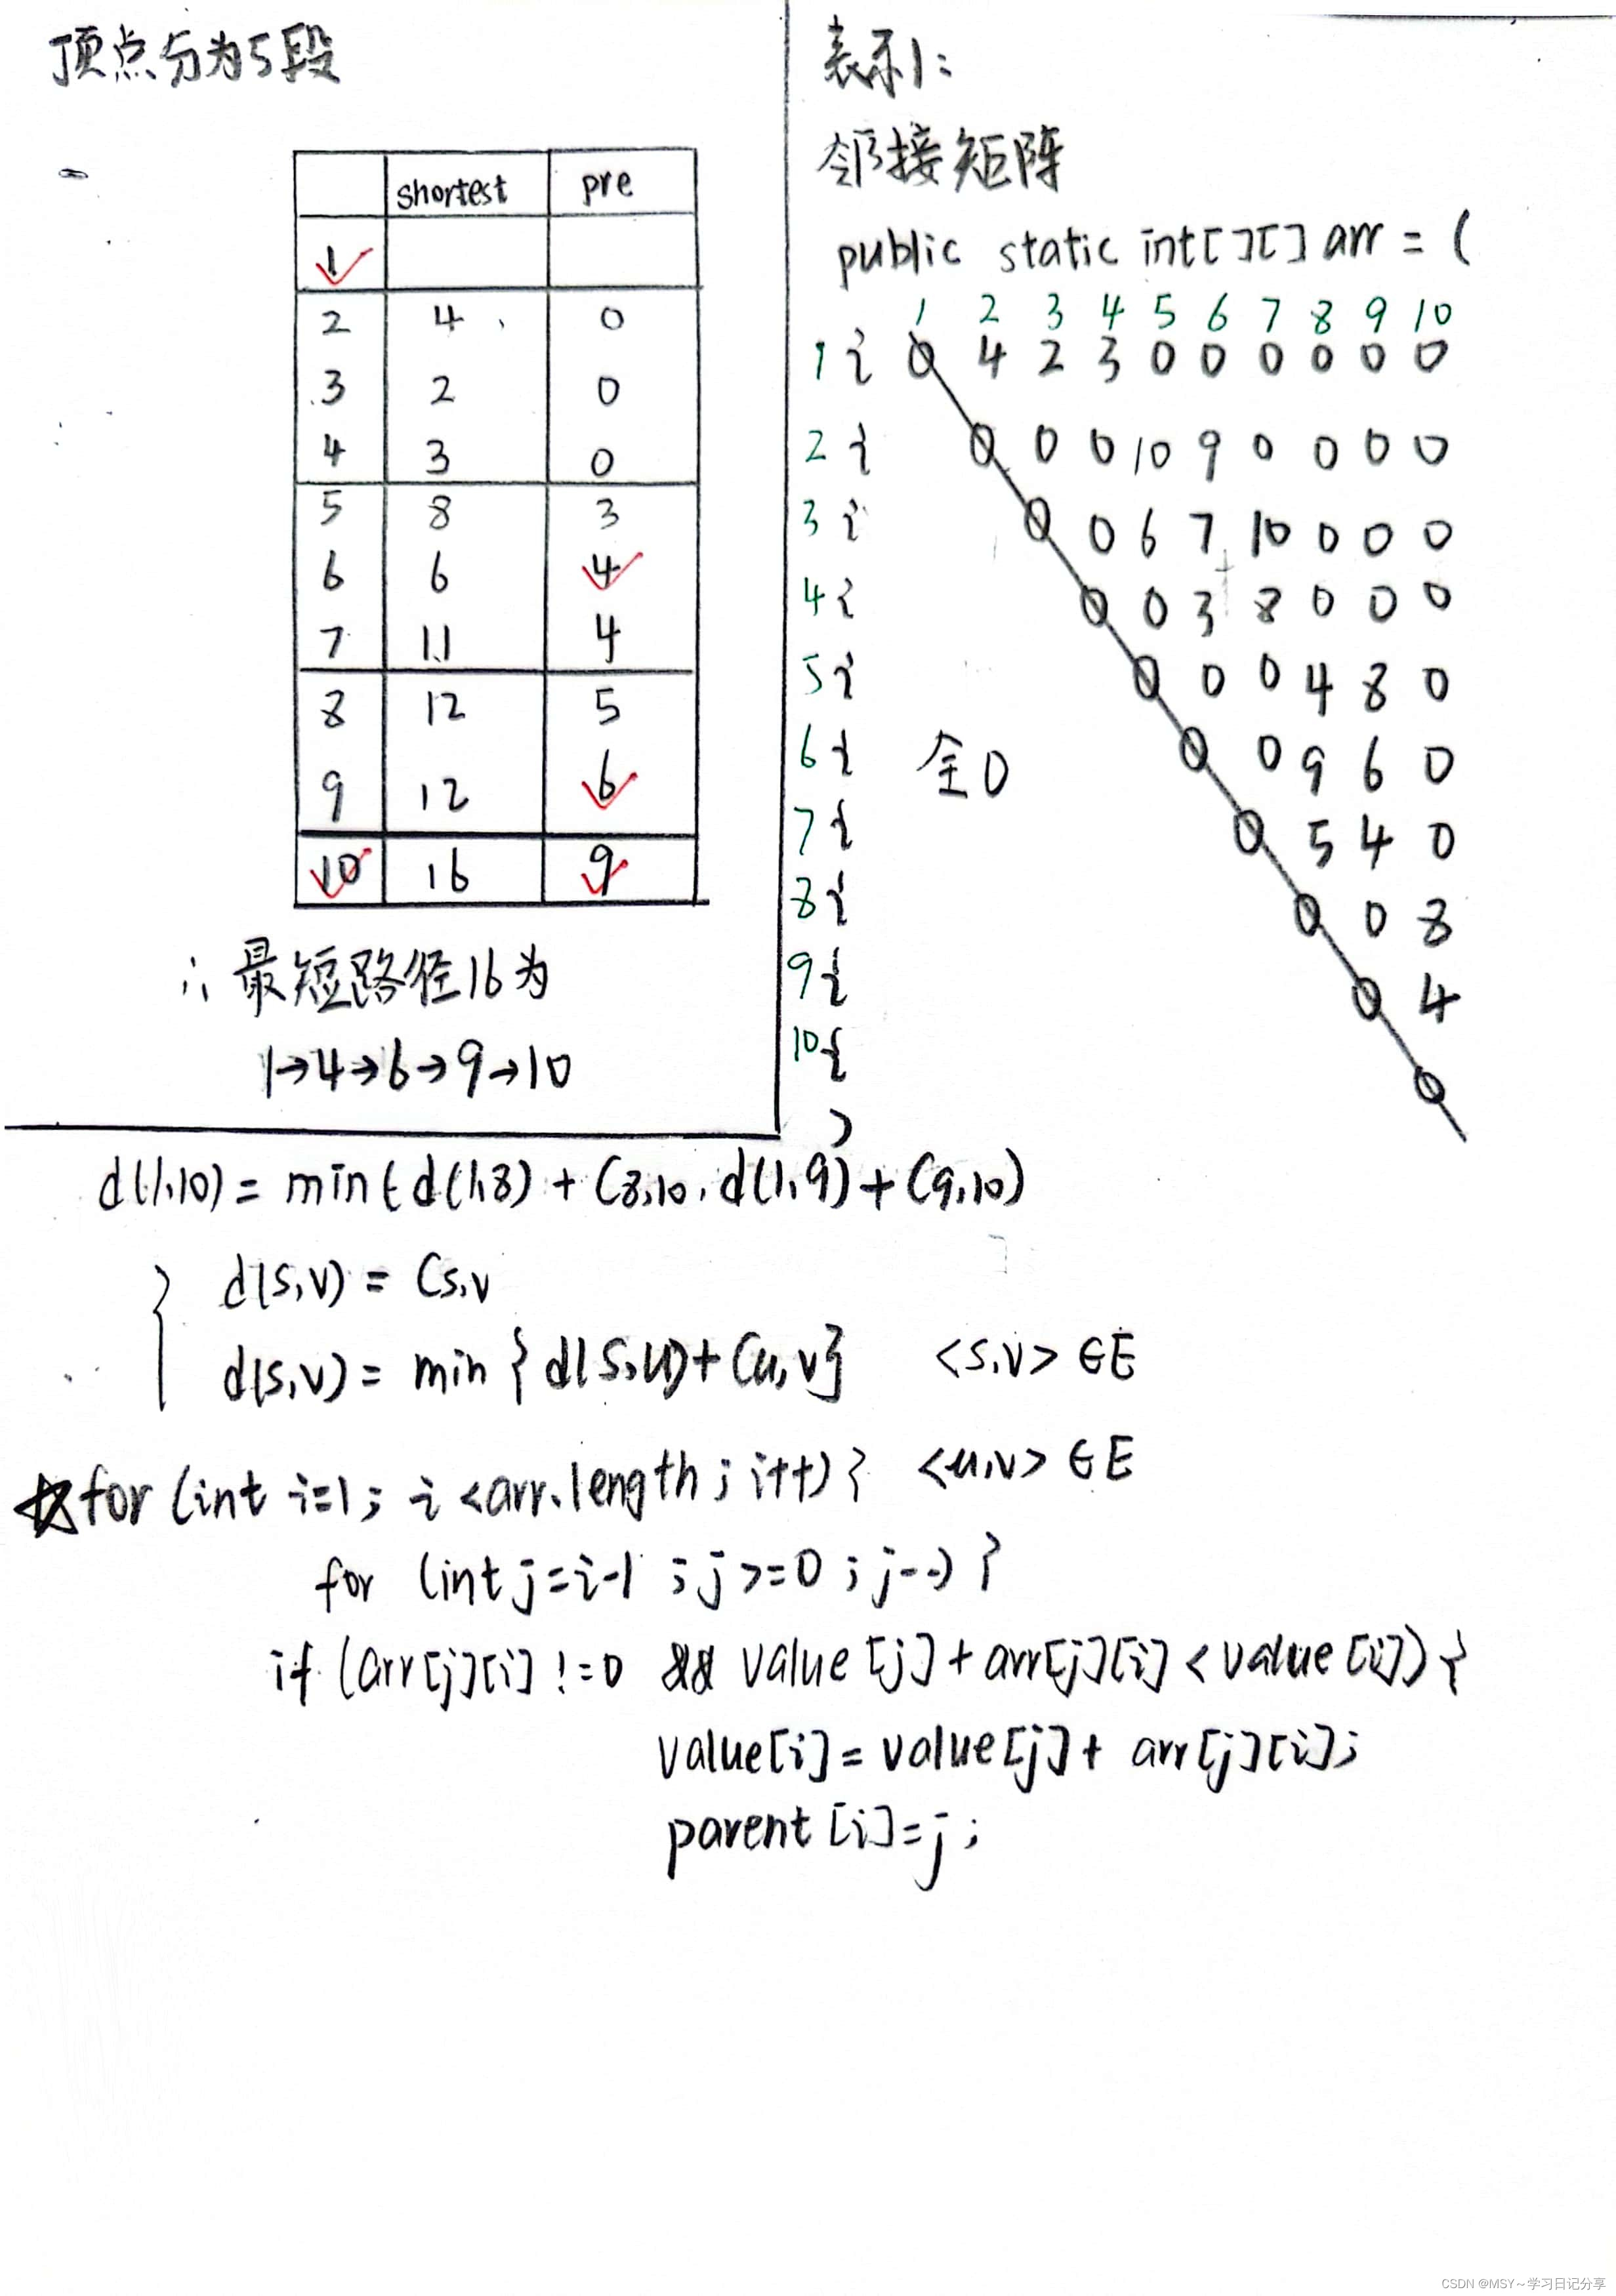 顶点分为5段
shortest pre
1
2 4 0
3 2 0
4 3 0
5 8 3
6 6 4
7 11 4
8 12 5
9 12 6
10 16 9
∴ 最短路径16为
1→4→6→9→10
表示1:
邻接矩阵
public static int[][] arr = (
1 2 3 4 5 6 7 8 9 10
1 { 0 4 2 3 0 0 0 0 0 0
2 { 0 0 0 10 9 0 0 0 0
3 { 0 0 6 7 10 0 0 0
4 { 0 0 3 8 0 0 0
5 { 0 0 0 4 8 0
6 { 全0 0 0 9 6 0
7 { 0 5 4 0
8 { 0 0 8
9 { 0 4
10 { 0
)
d(1,10) = min( d(1,8) + C8,10, d(1,9) + C9,10)
d(s,v) = Cs,v
d(s,v) = min { d(s,u) + Cu,v} <s,v> ∈E
<u,v> ∈E
for (int i=1; i <arr.length; i++) {
for (int j=i-1 ; j >=0 ; j--) {
if (arr[j][i] !=0 && value [j] + arr[j][i] < value [i]) {
value[i] = value[j] + arr[j][i];
parent [i] = j;
CSDN @MSY～学习日记分享